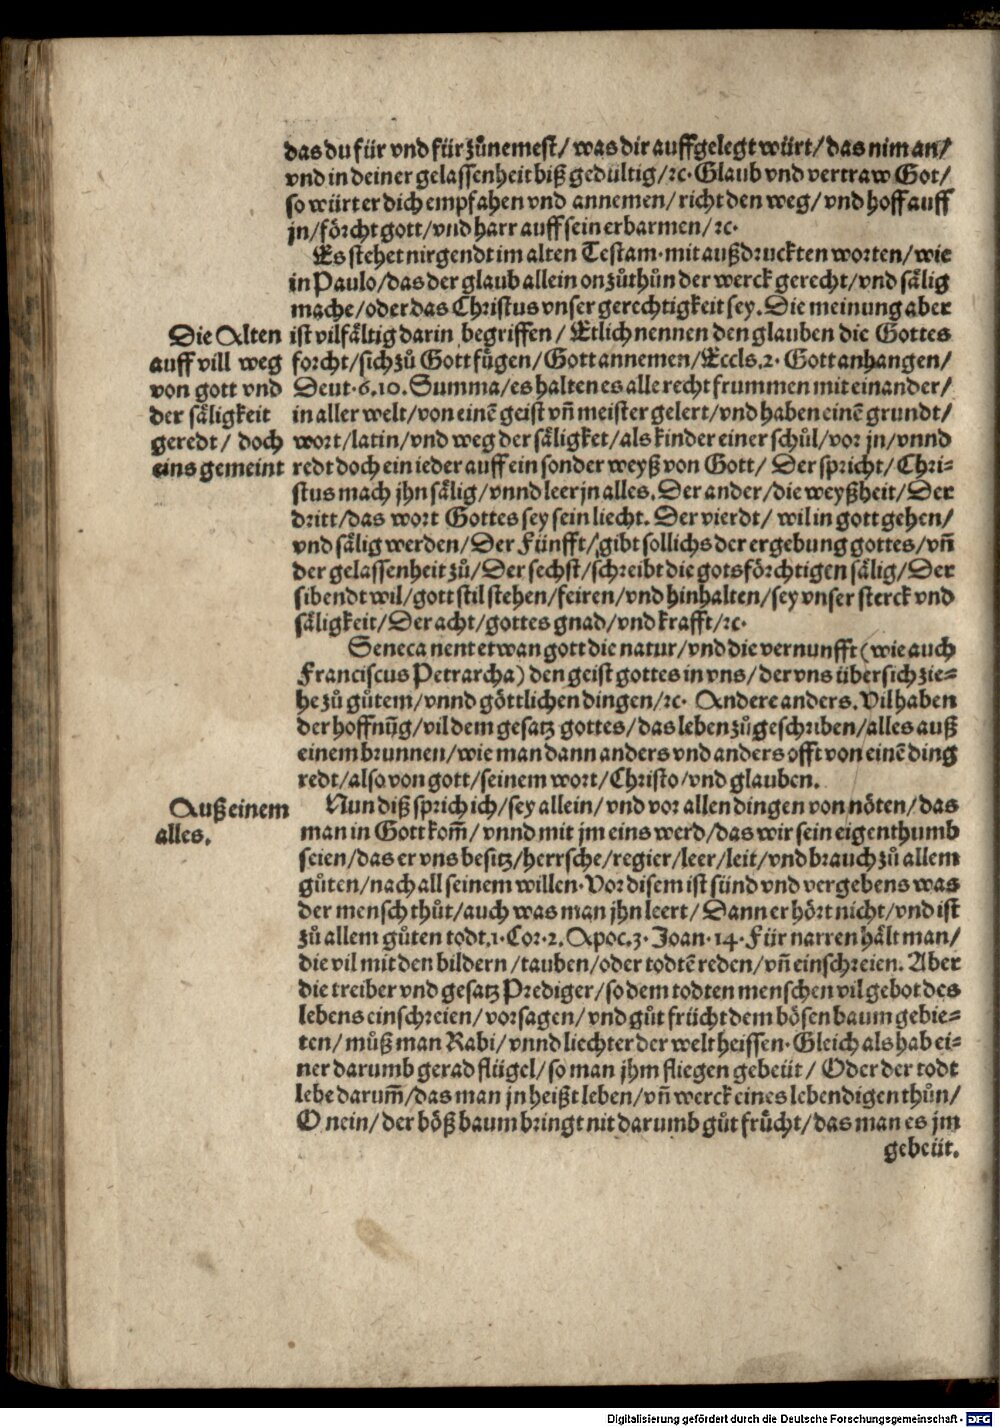 das du für vnd für zůnemest/ was dir auffgelegt würt/ das nim an/
vnd in deiner gelassenheit biß gedültig/ ⁊c. Glaub vnd vertraw Got/
so würt er dich empfahen vnd annemen/ richt den weg/ vnd hoff auff
jn/ förcht gott/ vnd harr auff sein erbarmen/ ⁊c.
Es stehet nirgendt im alten Testam. mit außdruckten worten/ wie
in Paulo/ das der glaub allein on zůthůn der werck gerecht/ vnd sälig
mache/ oder das Christus vnser gerechtigkeit sey. Die meinung aber
ist vilfältig darin begriffen/ Etlich nennen den glauben die Gottes
forcht/ sich zů Gott fügen/ Gott annemen/ Eccls. 2. Gott anhangen/
Deut. 6. 10. Summa/ es halten es alle recht frummen mit einander/
in aller welt/ von einē geist vñ meister gelert/ vnd haben einē grundt/
wort/ latin/ vnd weg der säligket/ als kinder einer schůl/ vor jn/ vnnd
redt doch ein ieder auff ein sonder weyß von Gott/ Der spricht/ Chri-
stus mach jhn sälig/ vnnd leer jn alles. Der ander/ die weyßheit/ Der
dritt/ das wort Gottes sey sein liecht. Der vierdt/ wil in gott gehen/
vnd sälig werden/ Der Fünfft/ gibt sollichs der ergebung gottes/ vñ
der gelassenheit zů/ Der sechst/ schreibt die gotsförchtigen sälig/ Der
sibendt wil/ gott stil stehen/ feiren/ vnd hinhalten/ sey vnser sterck vnd
säligkeit/ Der acht/ gottes gnad/ vnd krafft/ ⁊c.
Die Alten
auff vill weg
von gott vnd
der säligkeit
geredt/ doch
eins gemeint
Seneca nent etwan gott die natur/ vnd die vernunfft (wie auch
Franciscus Petrarcha) den geist gottes in vns/ der vns übersich zie-
he zů gůtem/ vnnd göttlichen dingen/ ⁊c. Andere anders. Vil haben
der hoffnūg/ vil dem gesatz gottes/ das leben zůgeschriben/ alles auß
einem brunnen/ wie man dann anders vnd anders offt von einē ding
redt/ also von gott/ seinem wort/ Christo/ vnd glauben.
Auß einem
alles.
Nun diß sprich ich/ sey allein/ vnd vor allen dingen von nöten/ das
man in Gott kom̄/ vnnd mit jm eins werd/ das wir sein eigenthumb
seien/ das er vns besitz/ herrsche/ regier/ leer/ leit/ vnd brauch zů allem
gůten/ nach all seinem willen. Vor disem ist sünd vnd vergebens was
der mensch thůt/ auch was man jhn leert/ Dann er hört nicht/ vnd ist
zů allem gůten todt. 1. Cor. 2. Apoc. 3. Joan. 14. Für narren hält man/
die vil mit den bildern/ tauben/ oder todtē reden/ vñ einschreien. Aber
die treiber vnd gesatz Prediger/ so dem todten menschen vil gebot des
lebens einschreien/ vorsagen/ vnd gůt frücht dem bösen baum gebie-
ten/ můß man Rabi/ vnnd liechter der welt heissen. Gleich als hab ei-
ner darumb gerad flügel/ so man jhm fliegen gebeüt/ Oder der todt
lebe darum̄/ das man jn heißt leben/ vñ werck eines lebendigen thůn/
O nein/ der böß baum bringt nit darumb gůt frücht/ das man es jm
gebeüt.
Digitalisierung gefördert durch die Deutsche Forschungsgemeinschaft - DFG